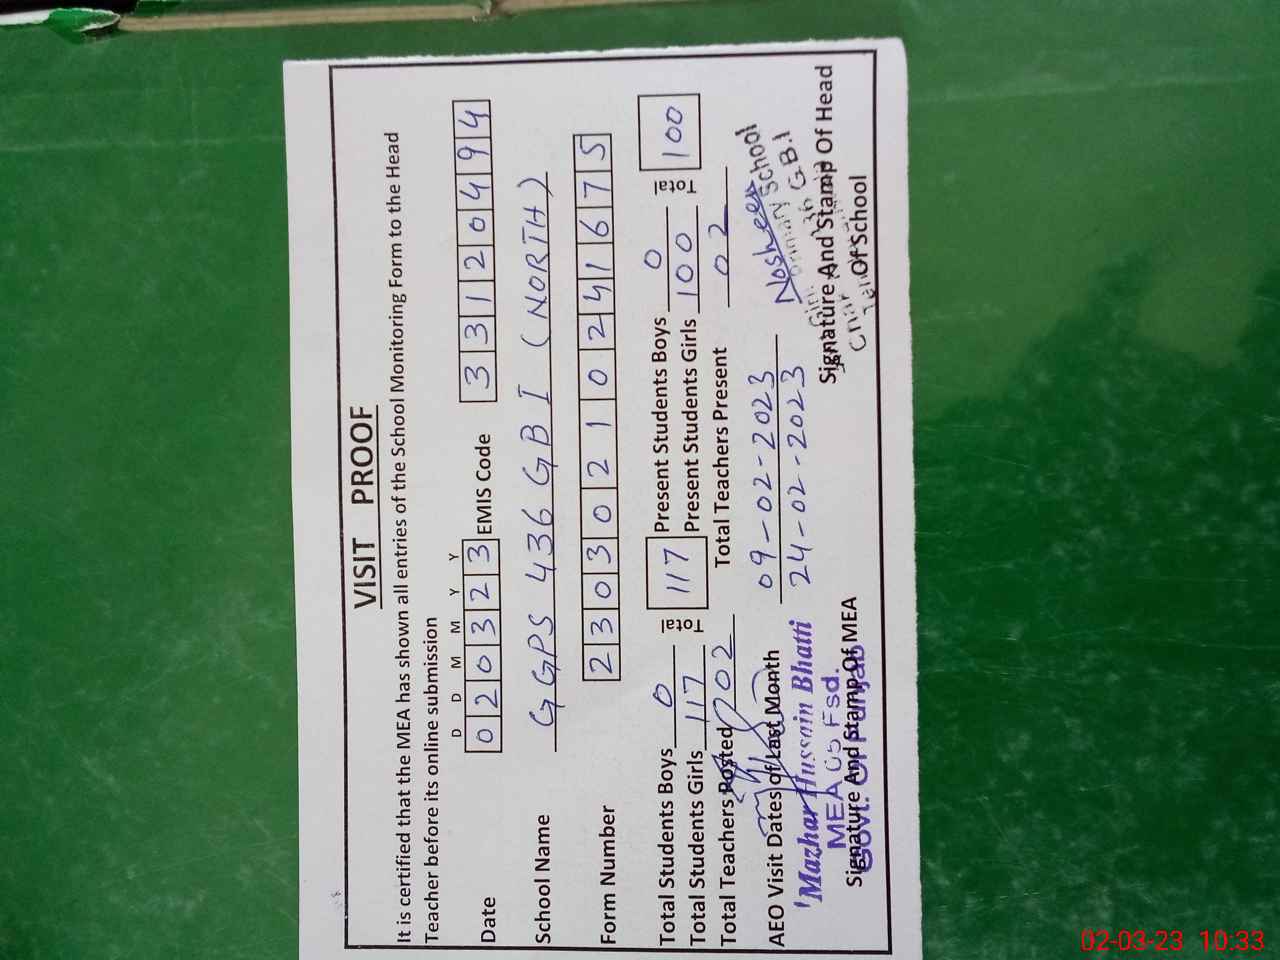 VISIT PROOF
It is certified that the MEA has shown all entries of the School Monitoring Form to the Head
Teacher before its online submission
D D M M Y Y
Date 020323 EMIS Code 33120494
School Name GGPS 436 GB I (NORTH)
Form Number 23030210241675
Total Students Boys 0 Total 117 Present Students Boys 0 Total 100
Total Students Girls 117 Present Students Girls 100
Total Teachers Posted 02 Total Teachers Present 02
AEO Visit Dates of Last Month 09-02-2023
24-02-2023
Mazhar Hussain Bhatti
MEA 05 Fsd.
Govt. Of Punjab
Signature And Stamp Of MEA
Nosheen
Primary School
G.B.I
Signature And Stamp Of Head
Of School
02-03-23 10:33